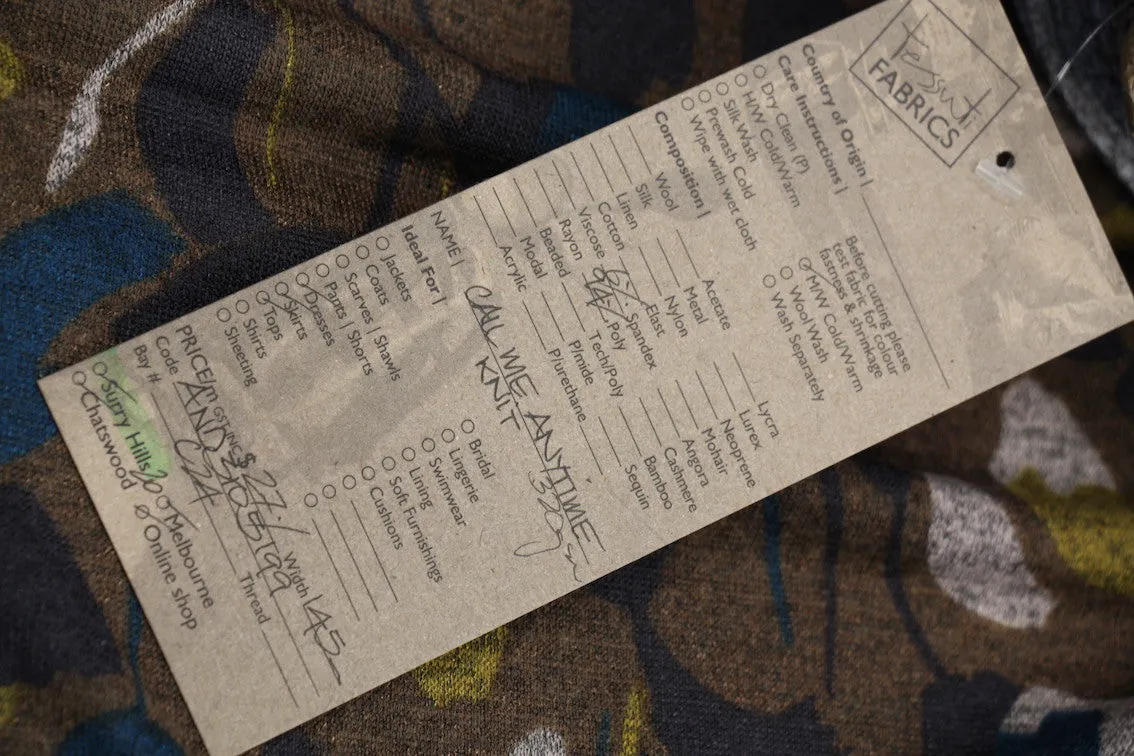 tessuti
FABRICS
Country of Origin |
Care Instructions |
Dry Clean (P)
H/W Cold/Warm
Silk Wash
Prewash Cold
Wipe with wet cloth
Before cutting please
test fabric for colour
fastness & shrinkage
M/W Cold/Warm
Wool Wash
Wash Separately
Composition |
Wool
Silk
Linen
Cotton
Viscose
Rayon
Beaded
Modal
Acrylic
Acetate
Metal
Nylon
Elast
6% Spandex
94% Poly
Tech/Poly
P/mide
P/urethane
Lycra
Lurex
Neoprene
Mohair
Angora
Cashmere
Bamboo
Sequin
NAME | CALL ME ANYTIME
KNIT
Ideal For |
Jackets
Coats
Scarves | Shawls
Pants | Shorts
Dresses
Skirts
Tops
Shirts
Sheeting
Bridal
Lingerie
Swimwear
Lining
Soft Furnishings
Cushions
PRICE/m GST INC $ 27/ Width 145
Code
Bay # C2A Thread
Surry Hills Melbourne
Chatswood Online shop